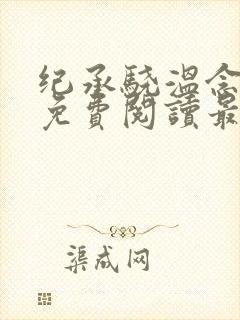 纪承驍温念
免費閱讀最
渠成网